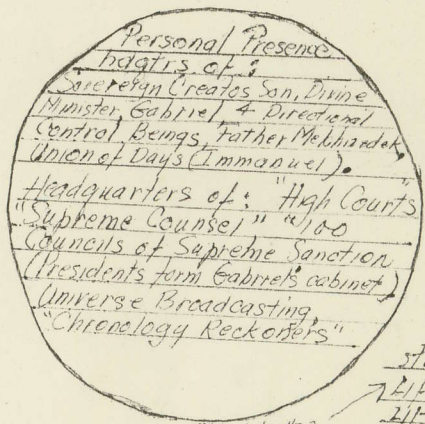 Personal Presence
hdqtrs of:
Sovereign Creator Son, Divine
Minister Gabriel, 4 Directional
Control Beings, Father Melchizedek,
Union of Days (Immanuel).
Headquarters of: "High Courts"
"Supreme Counsel" "100
Councils of Supreme Sanction
(Presidents form Gabriel's cabinet)
Universe Broadcasting,
"Chronology Reckoners"